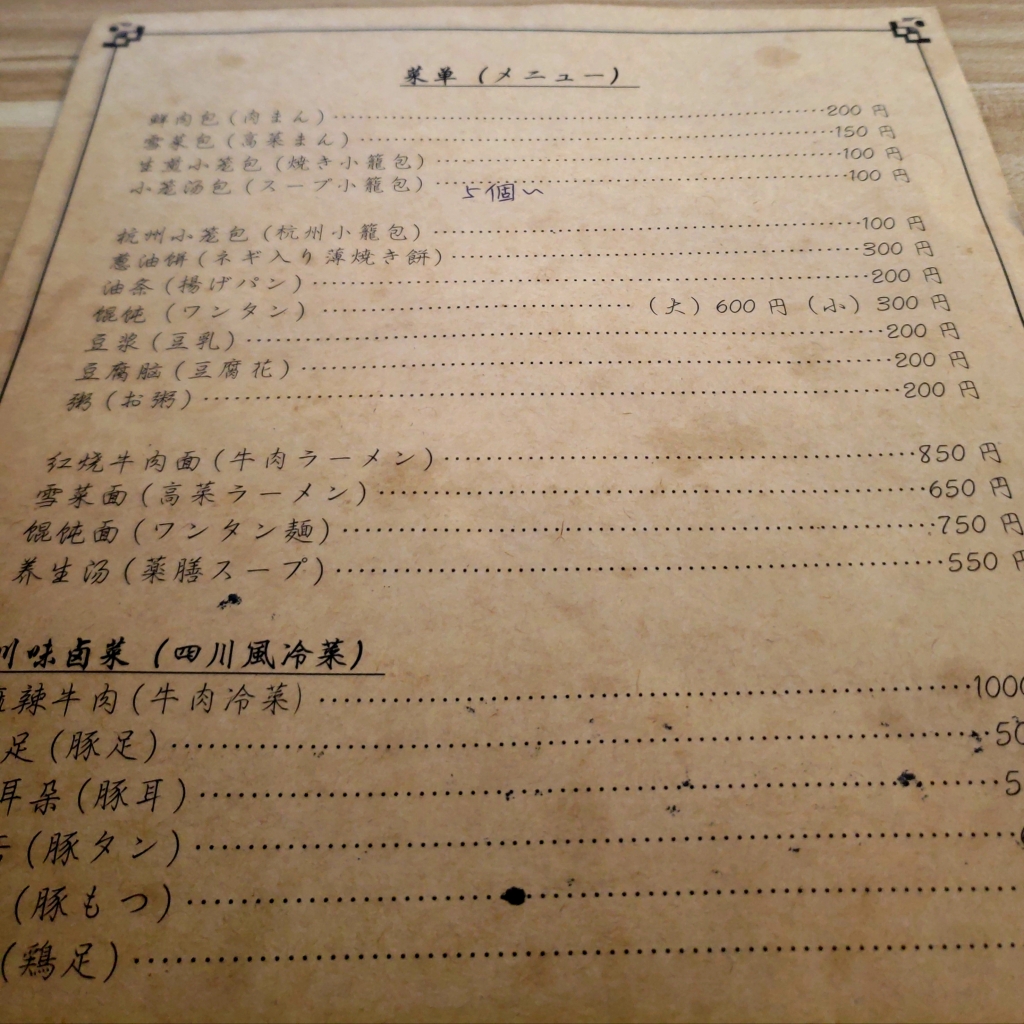 菜单（メニュー）
鲜肉包（肉まん）……200 円
雪菜包（高菜まん）……150 円
生煎小笼包（焼き小籠包）……100 円
小笼汤包（スープ小籠包）……100 円
5個〜
杭州小笼包（杭州小籠包）……100 円
葱油饼（ネギ入り薄焼き餅）……300 円
油条（揚げパン）……200 円
馄饨（ワンタン）……（大）600 円（小）300 円
豆浆（豆乳）……200 円
豆腐脑（豆腐花）……200 円
粥（お粥）……200 円
红烧牛肉面（牛肉ラーメン）……850 円
雪菜面（高菜ラーメン）……650 円
馄饨面（ワンタン麺）……750 円
养生汤（薬膳スープ）……550 円
川味卤菜（四川風冷菜）
辣牛肉（牛肉冷菜）……1000
足（豚足）……50
耳朵（豚耳）……5
（豚タン）……
（豚もつ）……
（鶏足）……